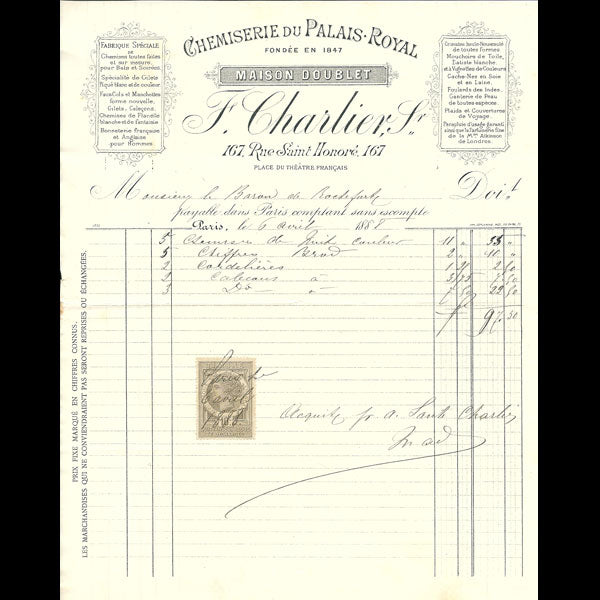 CHEMISERIE DU PALAIS-ROYAL
FONDÉE EN 1847
MAISON DOUBLET
F. Charlier, Sr
167, Rue Saint Honoré, 167
PLACE DU THÉÂTRE FRANÇAIS
FABRIQUE SPÉCIALE
DE
Chemises toutes faites
et sur mesure,
pour Bals et Soirées.
Spécialité de Gilets
Piqué blanc et de couleur
Faux-Cols et Manchettes
forme nouvelle,
Gilets, Caleçons,
Chemises de Flanelle
blanche et de fantaisie
Bonneterie française
et Anglaise
pour Hommes.
Cravates haute Nouveauté
de toutes formes
Mouchoirs de Toile,
Batiste blanche
et à Vignettes de Couleurs
Cache-Nez en Soie
et en Laine,
Foulards des Indes,
Ganterie de Peau
de toutes espèces.
Plaids et Couverture
de Voyage.
Parapluie d'usage garanti
ainsi que la Parfumerie fine
de la Mon Atkinson
de Londres.
Monsieur le Baron de Rochefort Doit
payable dans Paris comptant sans escompte
Paris, le 6 avril 1888
5 Chemises de Nuit Couleur 11 " 55 "
5 Chiffres Brod 2 " 10 "
2 Cordelières
2 Caleçons à 3 75 7 50
3 Do " 7 50 22 50
97 50
Acquit pr
Charlier
PRIX FIXE MARQUÉ EN CHIFFRES CONNUS.
LES MARCHANDISES QUI NE CONVIENDRAIENT PAS SERONT REPRISES OU ÉCHANGÉES.